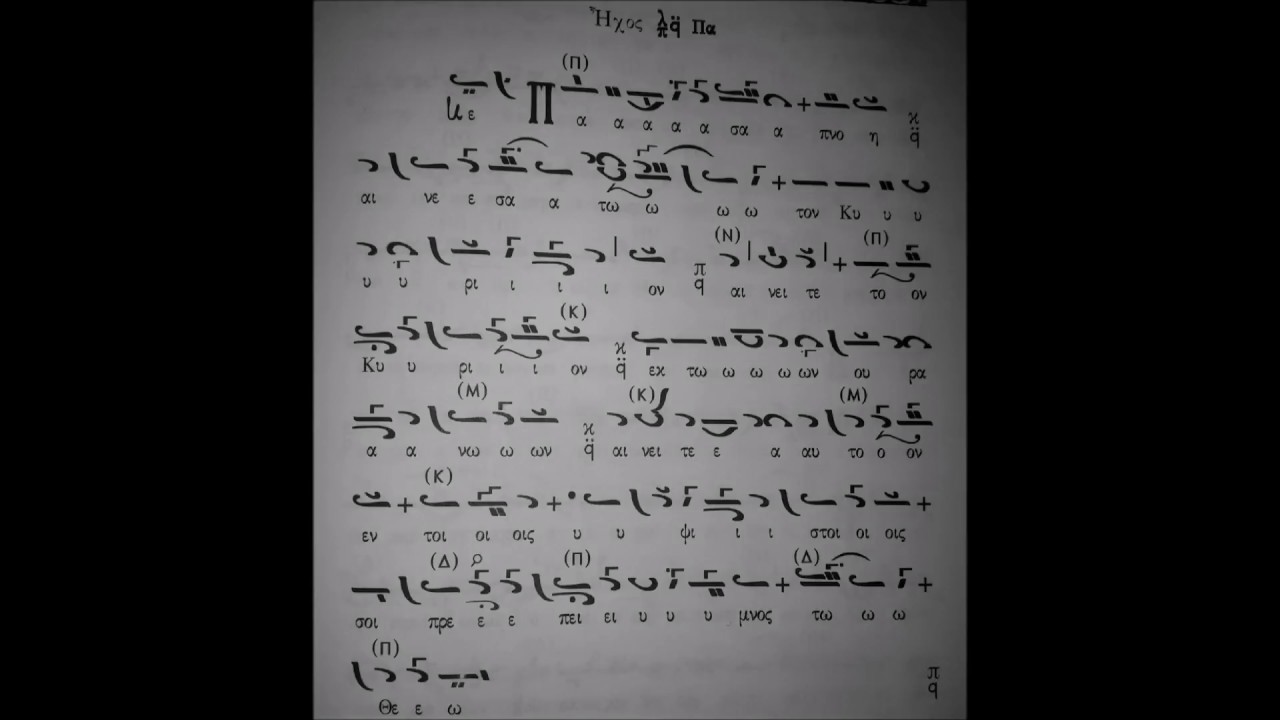 Ἦχος λ π q̈ Πα
(Π)
με Π α α α α α σα α πνο η ϰ q̈
αι νε ε σα α τω ω ω ω τον Κυ υ υ
(Ν) (Π)
υ υ ρι ι ι ι ον π q αι νει τε το ον
(Κ)
Κυ υ ρι ι ι ον ϰ q̈ εκ τω ω ω ω ων ου ρα
(Μ) (Κ) (Μ)
α α νω ω ων ϰ q̈ αι νει τε ε α αυ το ο ον
(Κ)
εν τοι οι οις υ υ ψι ι ι στοι οι οις
(Δ) (Π) (Δ)
σοι πρε ε ε πει ει υ υ υ μνος τω ω ω
(Π)
Θε ε ω π q